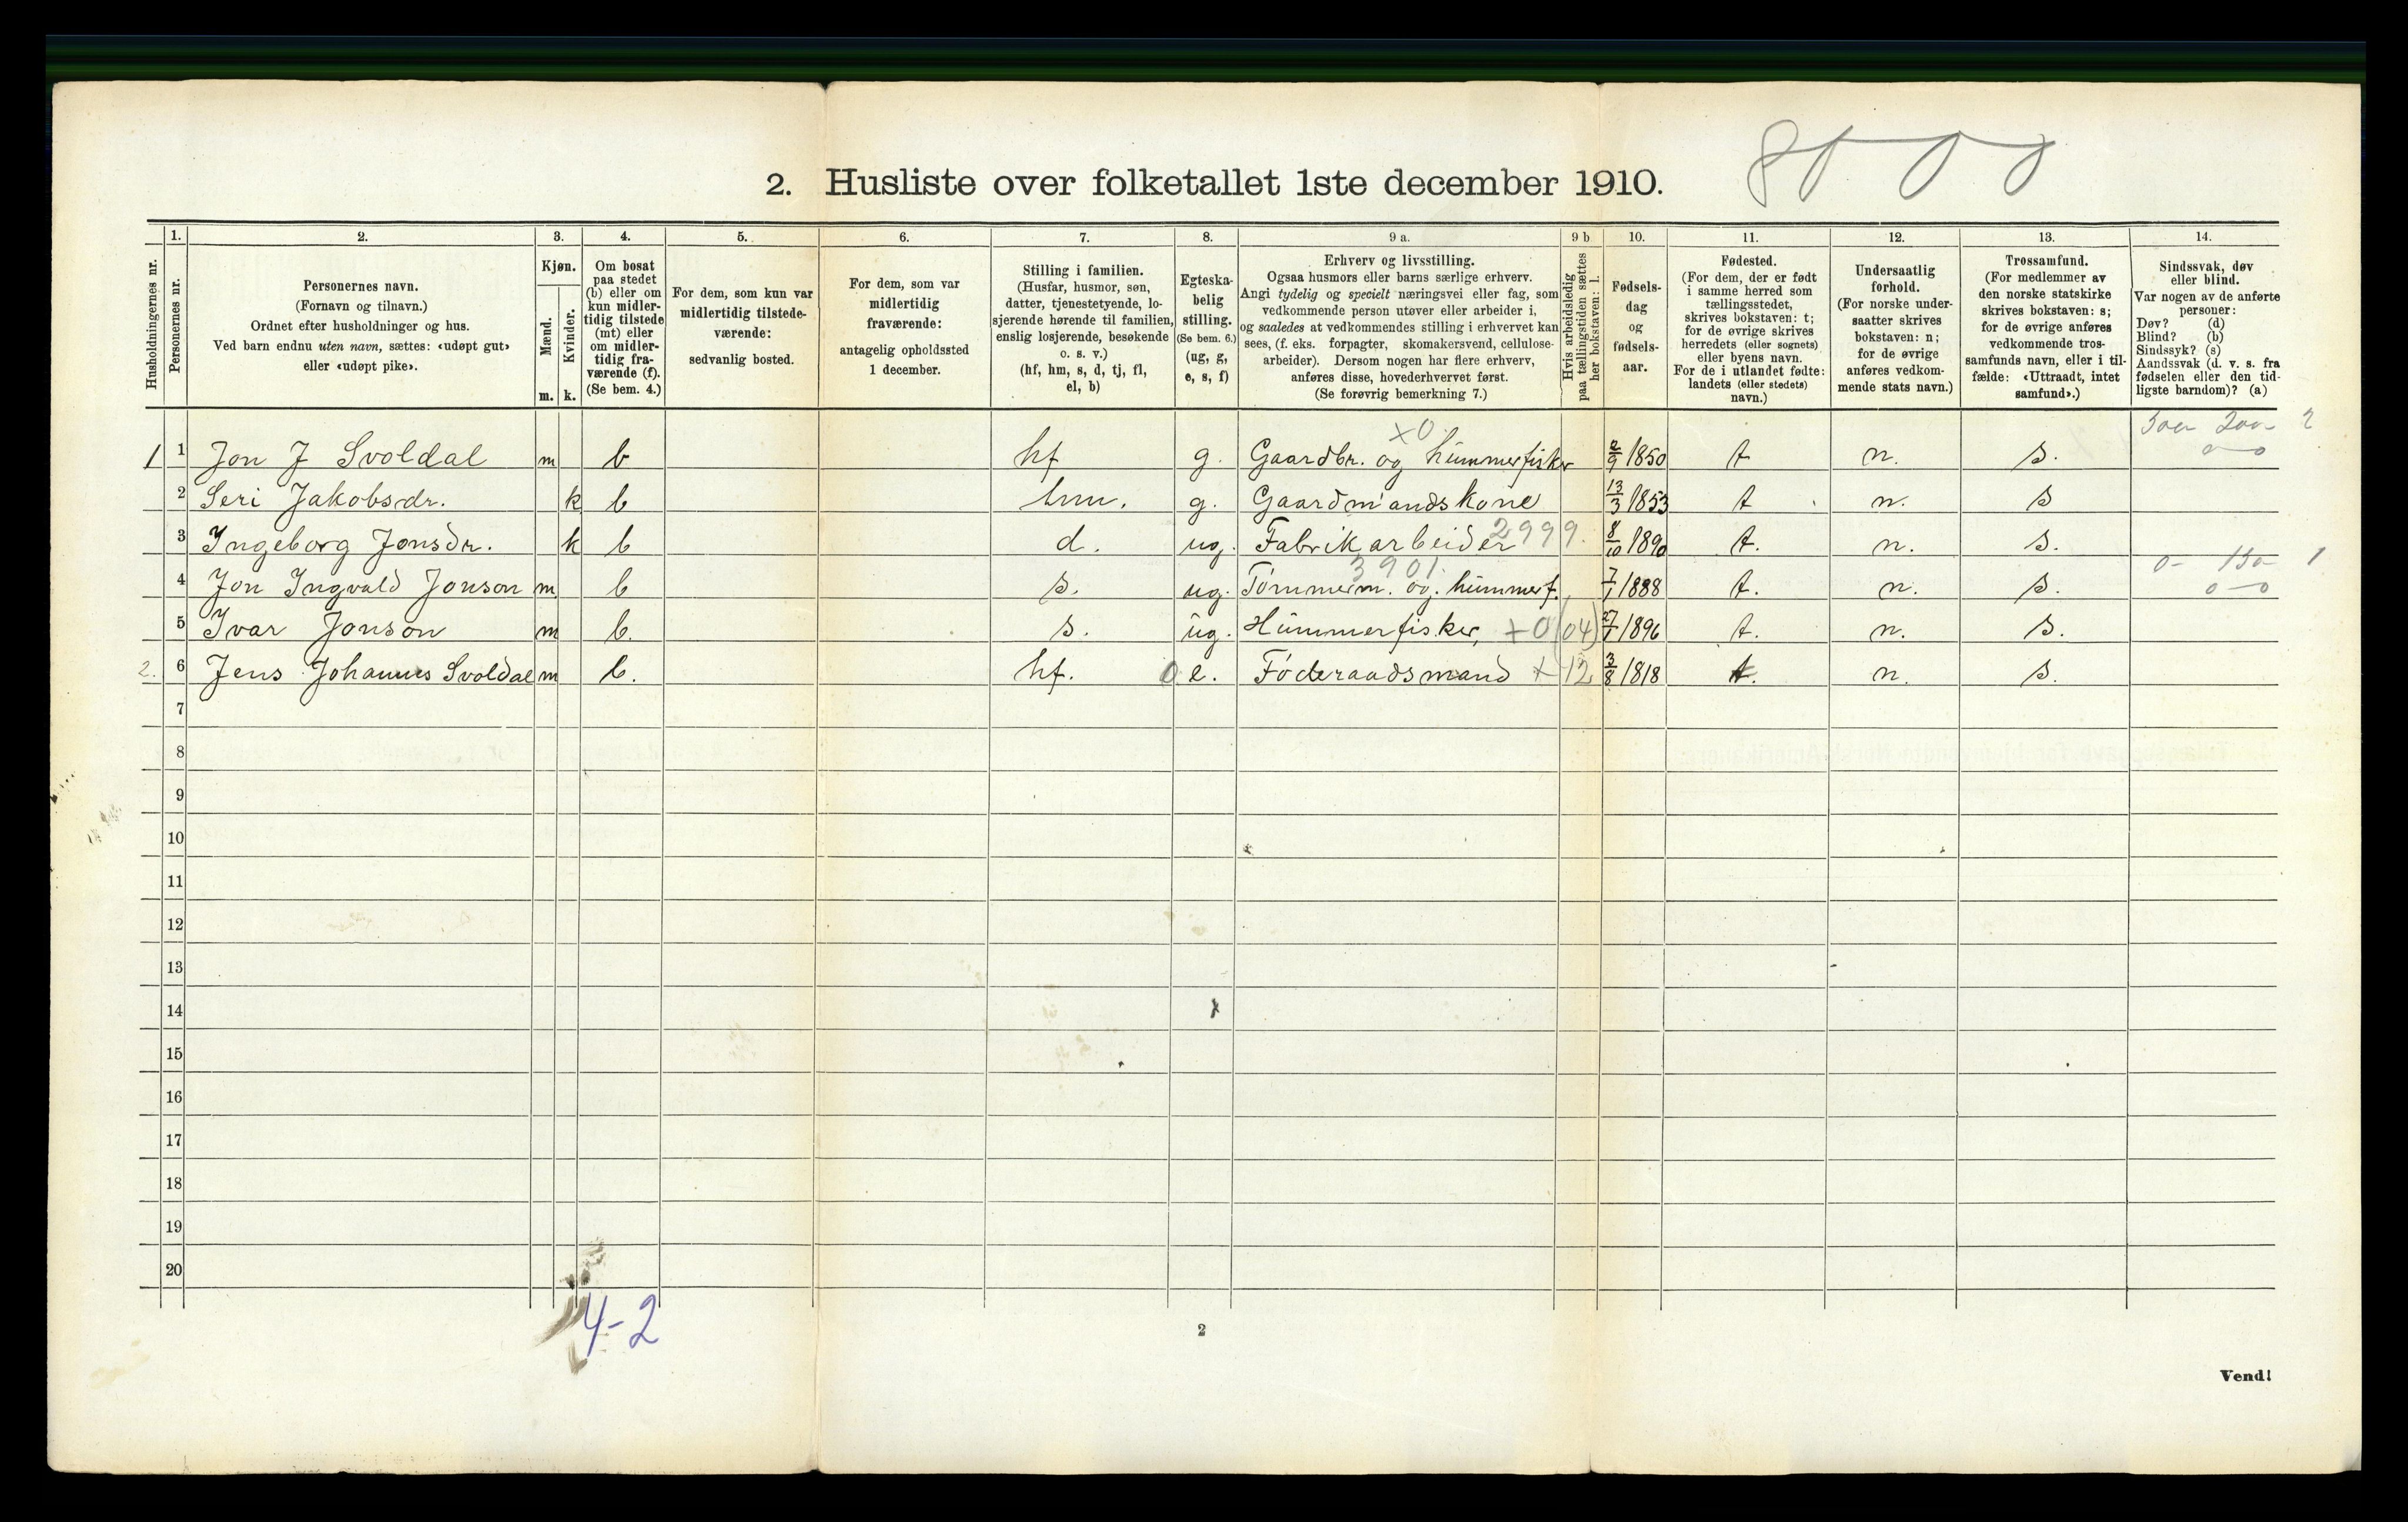 2. Husliste over folketallet 1ste december 1910.
Husholdningernes nr.
1.
Personernes nr.
2.
Personernes navn.
(Fornavn og tilnavn.)
Ordnet efter husholdninger og hus.
Ved barn endnu uten navn, sættes: «udøpt gut»
eller «udøpt pike».
3.
Kjøn.
Mænd.
Kvinder.
m. k.
4.
Om bosat
paa stedet
(b) eller om
kun midler-
tidig tilstede
(mt) eller
om midler-
tidig fra-
værende (f).
(Se bem. 4.)
5.
For dem, som kun var
midlertidig tilstede-
værende:
sedvanlig bosted.
6.
For dem, som var
midlertidig
fraværende:
antagelig opholdssted
1 december.
7.
Stilling i familien.
(Husfar, husmor, søn,
datter, tjenestetyende, lo-
sjerende hørende til familien,
enslig losjerende, besøkende
o. s. v.)
(hf, hm, s, d, tj, fl,
el, b)
8.
Egteska-
belig
stilling.
(Se bem. 6.)
(ug, g,
e, s, f)
9 a.
Erhverv og livsstilling.
Ogsaa husmors eller barns særlige erhverv.
Angi tydelig og specielt næringsvei eller fag, som
vedkommende person utøver eller arbeider i,
og saaledes at vedkommendes stilling i erhvervet kan
sees, (f. eks. forpagter, skomakersvend, cellulose-
arbeider). Dersom nogen har flere erhverv,
anføres disse, hovederhvervet først.
(Se forøvrig bemerkning 7.)
9 b
Hvis arbeidsledig
paa tællingstiden sættes
her bokstaven: l.
10.
Fødsels-
dag
og
fødsels-
aar.
11.
Fødested.
(For dem, der er født
i samme herred som
tællingsstedet,
skrives bokstaven: t;
for de øvrige skrives
herredets (eller sognets)
eller byens navn.
For de i utlandet fødte:
landets (eller stedets)
navn.)
12.
Undersaatlig
forhold.
(For norske under-
saatter skrives
bokstaven: n;
for de øvrige
anføres vedkom-
mende stats navn.)
13.
Trossamfund.
(For medlemmer av
den norske statskirke
skrives bokstaven: s;
for de øvrige anføres
vedkommende tros-
samfunds navn, eller i til-
fælde: «Uttraadt, intet
samfund».)
14.
Sindssvak, døv
eller blind.
Var nogen av de anførte
personer:
Døv? (d)
Blind? (b)
Sindssyk? (s)
Aandssvak (d. v. s. fra
fødselen eller den tid-
ligste barndom)? (a)
x0
1 1 Jon J Svoldal m b hf g. Gaardbr. og hummerfisker 2/9 1850 t n. s.
2 Seri Jakobsdr. k b hm. g. Gaardmandskone 13/3 1853 t n. s
2999.
3 Ingeborg Jonsdr. k b d. ug. Fabrikarbeider 8/10 1890 t. n. s.
3901.
4 Jon Ingvald Jonson m b s. ug. Tømmerm. og. hummerf. 7/1 1888 t. n. s.
5 Ivar Jonson m b. s. ug. Hummerfisker, +0 (04) 27/1 1896 t. n. s.
2. 6 Jens Johannes Svoldal m b. hf. 0 e. Føderaadsmand + 12 3/8 1818 t. n. s.
7
8
9
10
11
12
13
14
15
16
17
18
19
20
4-2
2
Vend!